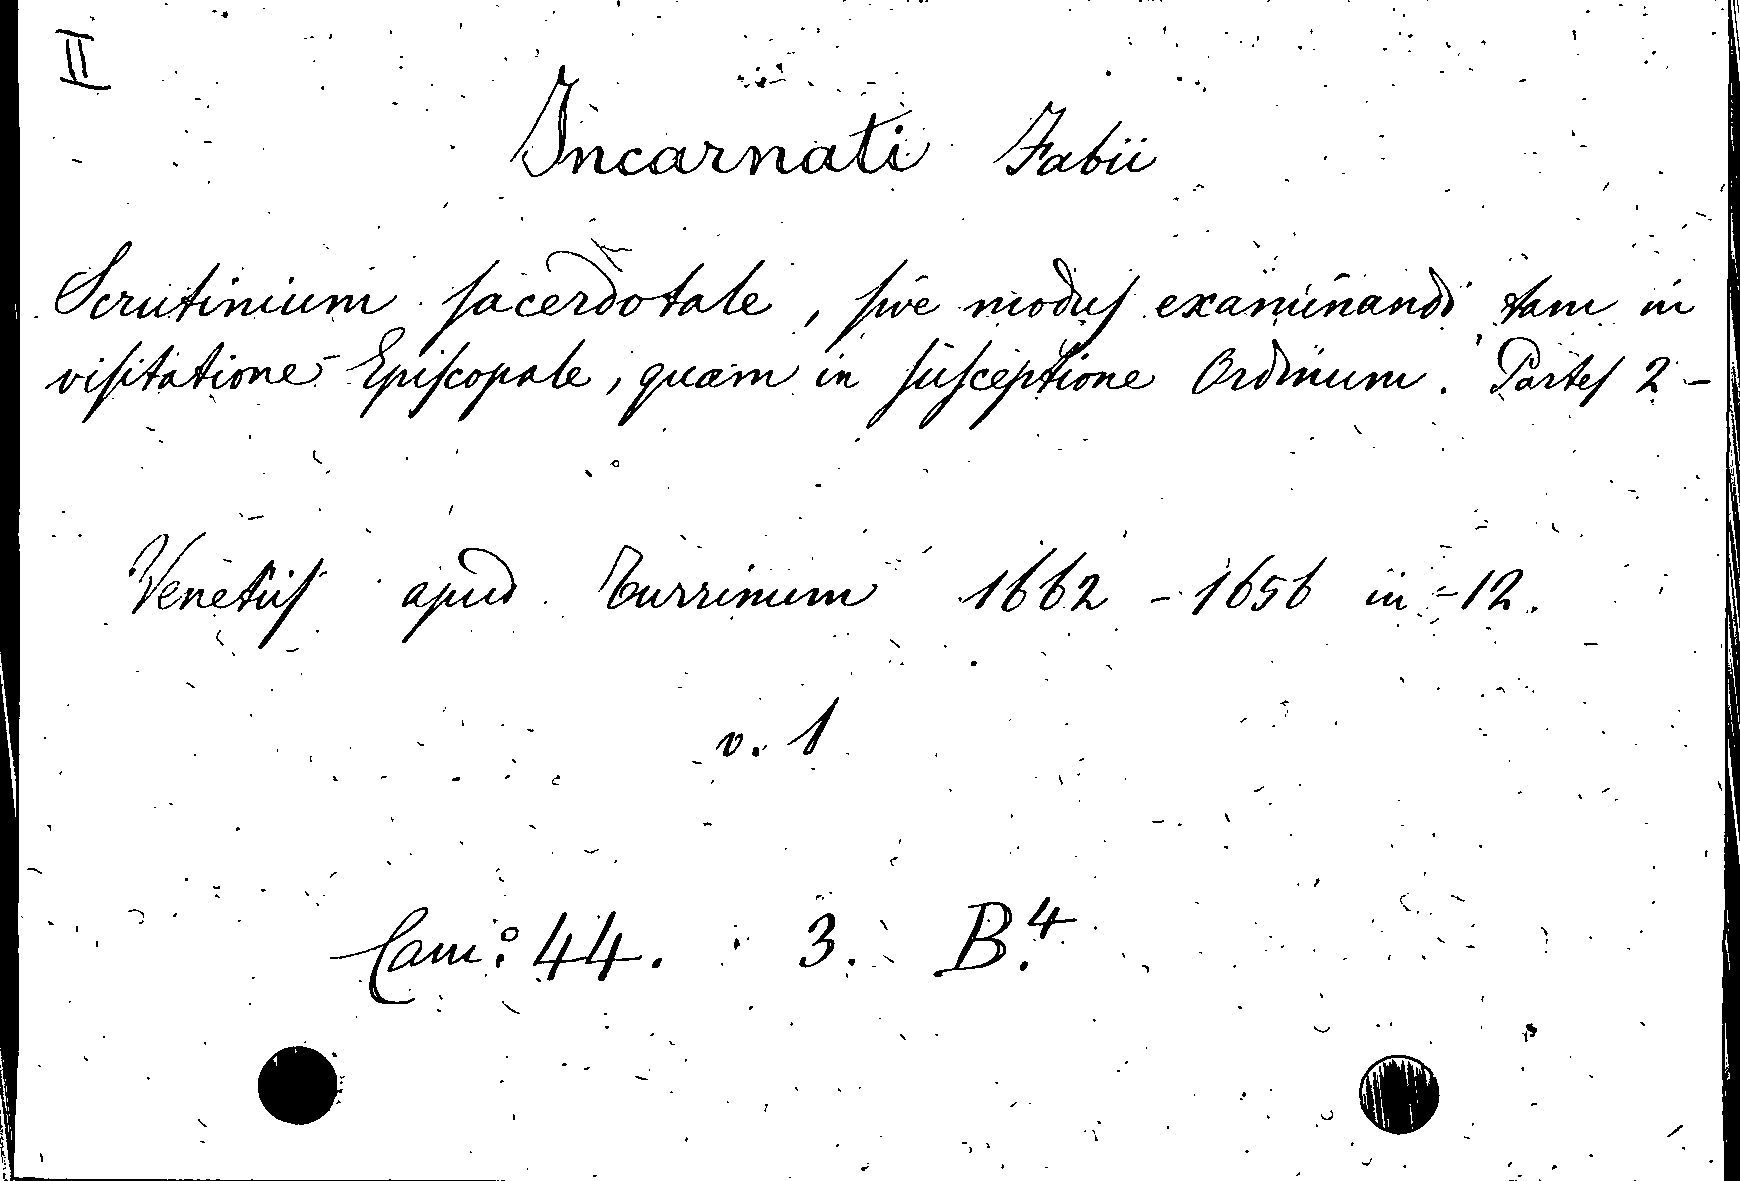 II
Incarnati Fabii
Scrutinium sacerdotale, sive modus examinandi tam in
visitatione Episcopale, quam in susceptione Ordinum. Partes 2 -
Venetiis apud Turrinum 1662 - 1656 in - 12.
v. 1
Cam: 44. 3. B.4